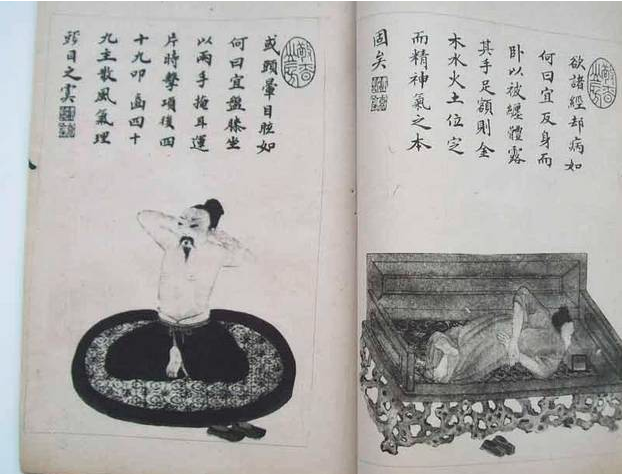 欲諸經却病如
何曰宜反身而
臥以被纏體露
其手足額則金
木水火土位定
而精神氣之本
固矣
或頭暈目眩如
何曰宜盤膝坐
以兩手掩耳運
片時擊項後四
十九叩齒四十
九主散風氣理
目之